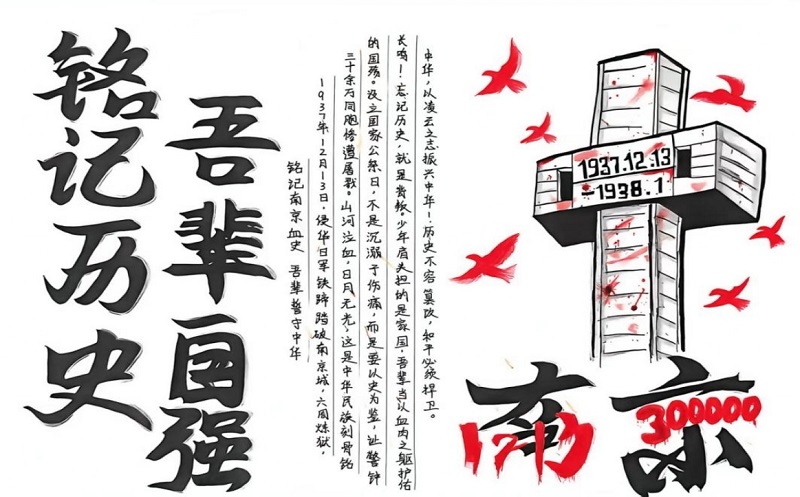 铭记历史
吾辈自强
铭记南京血史 吾辈誓守中华
1937年12月13日，侵华日军铁蹄踏破南京城，六周炼狱，
三十余万同胞惨遭屠戮。山河泣血，日月无光，这是中华民族刻骨铭
的国殇。设立国家公祭日，不是沉溺于伤痛，而是要以史为鉴，让警钟
长鸣！忘记历史，就是背叛。少年肩头担的是家国，吾辈当以血肉之躯护佑
中华，以凌云之志振兴中华！历史不容篡改，和平必须捍卫。
1937.12.13
-1938.1
南京
1213
300000